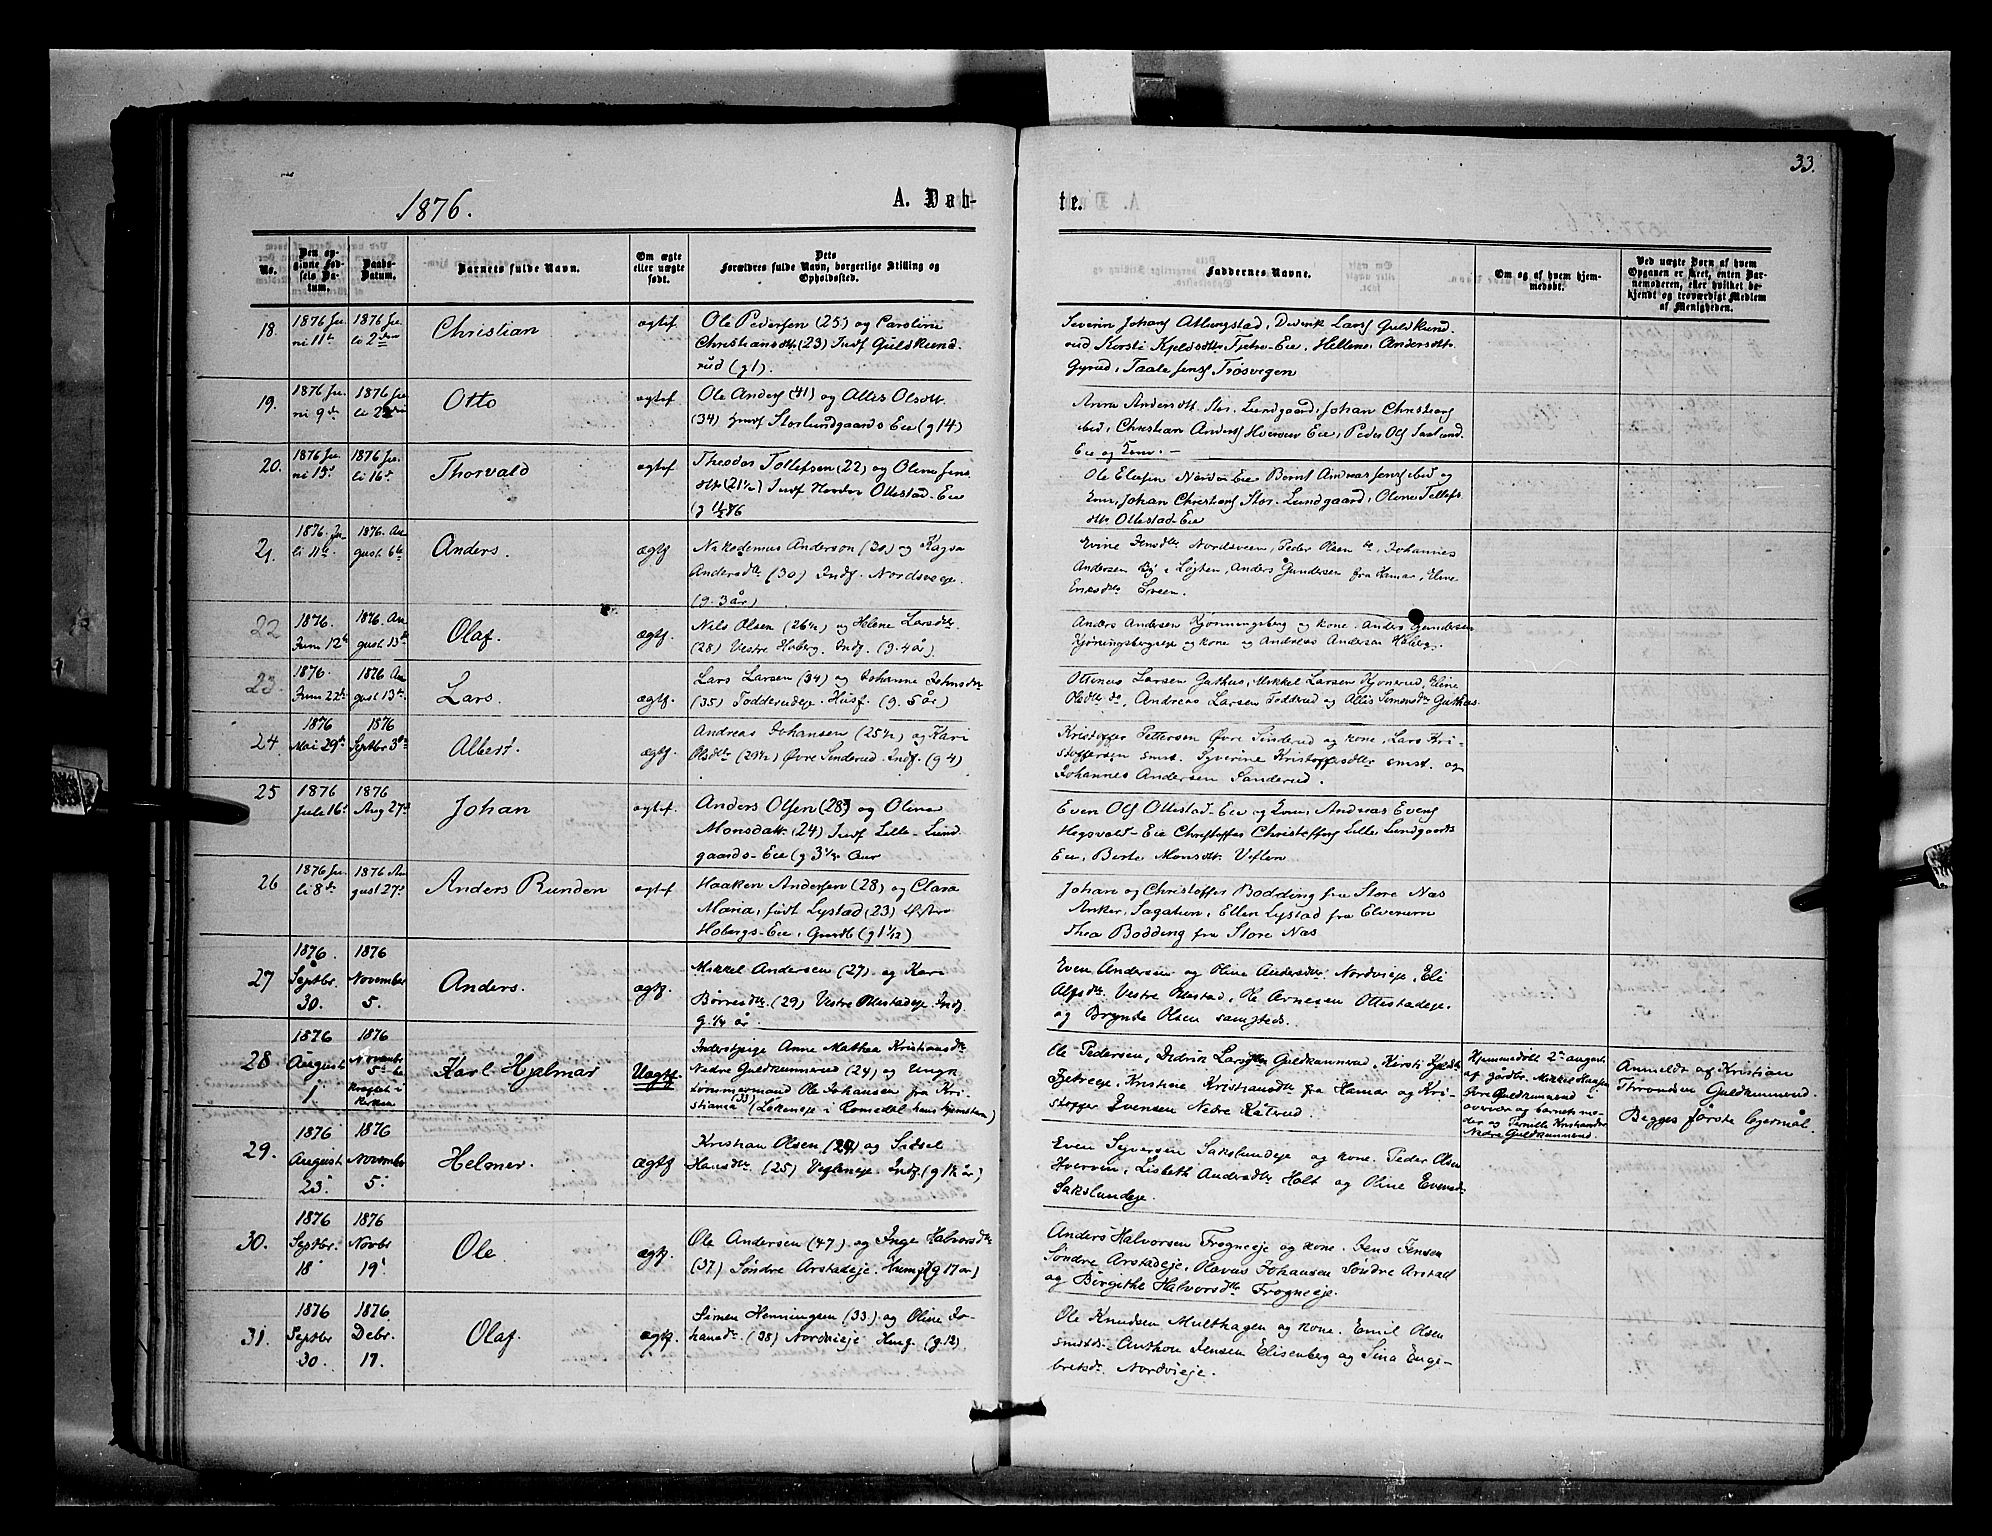 33.
1876.
A. Døb-
te.
No.
Den op-
givne Fød-
sels Da-
tum.
Daabs-
Datum.
Barnets fulde Navn.
Om ægte
eller uægte
født.
Dets
Forældres fulde Navn, borgerlige Stilling og
Opholdssted.
Faddernes Navne.
Om og af hvem hjem-
medøbt.
Ved uægte Børn af hvem
Opgaven er sket, enten Bar-
nemoderen, eller hvilket be-
kjendt og troværdigt Medlem
af Menigheden.
18.
1876 Ju-
ni 11te
1876 Ju-
li 2den
Christian
ægtef.
Ole Pedersen (25) og Caroline
Christiansdtr (23) Indf Gulskund
rud (g1).
Severin Johans Atlungstad, Diderik Lars Guldkund
rud Kersti Kjeldsdtr Tjetre-Eie, Hellene Andersdtr
Gyrud, Taale Jens Trøsvegen
19.
1876 Ju-
ni 9de
1876 Ju-
li 2den
Otto
ægtef.
Ole Anders (41) og Alles Olsdtr.
(34) Indf Storlundgaards Eie (g 14)
Anne Andersdtr. Stor. Lundgaard, Johan Christians
ibid, Christian Anders Hverven Eie, Peder Ols
Eie og Kone. -
20.
1876 Ju-
ni 15de
1876 Ju-
li 16de
Thorvald
ægtef.
Theodor Tollefsen (22) og Oline Jens
dtr (21½) Indf Nordre Ottestad-Eie
Ole Elefsen Nordre Eie Bernt Andreas Jens ibid og
Kone, Johan Christians Stor. Lundgaard, Oline Tollefs
dtr Ottestad-Eie
21.
1876. Ju-
li 11te.
1876. Au-
gust 6te
Anders.
ægtf.
Nikodemus Anderson (30) og Kajsa
Andersdtr (30) Indf. Nordsveje.
(g. 3 år)
Evine Jensdtr Nordsveen, Peder Olsen do, Johannes
Andersen By i Løjten, Anders Gundersen fra Hamar, Eline
Eriksdtr Sveen.
22
1876.
Juni 12te
1876. Au-
gust 13de
Olaf.
ægtf.
Nils Olsen (26½) og Helene Larsdtr
(28) Vestre Hoberg. Indf. (g. 4 år)
Anders Andersen Kjønningsberg og kone. Anders Gundersen
Kjøningsbergeje og kone og Andreas Andersen Hoberg.
23.
1876.
Juni 22de
1876 Au-
gust 13de
Lars.
ægtf.
Lars Larsen (34) og Johanne Johnsdtr
(35) Todderudeje. Husf. (g. 5 år)
Ottinus Larsen Guthus, Mikkel Larsen Kjonerud, Eline
Olsdtr do, Andreas Larsen Todderud og Allis Simensdtr Guthus
24
1876
Mai 29de
1876
Septbr 3die
Albert.
ægtf.
Andreas Johansen (25½) og Kari
Olsdtr (29½) Øvre Sinderud. Indf. (g 4)
Kristoffer Pettersen Øvre Sinderud og kone, Lars Kri-
stoffersen smst. Syverine Kristoffersdtr smst. og
Johannes Andersen Sanderud.
25
1876
Juli 16de
1876
Aug 27de
Johan
ægtef.
Anders Olsen (28) og Oline
Monsdatt (24) Indf Lille-Lund
gaards-Eie (g 3½ Aar
Even Ols Ottestad-Eie og Kone, Andreas Evens
Hogsvold-Eie Christoffer Christoffers Lille Lundgaards
Eie, Berte Monsdtr Veflen
26
1876 Ju-
li 8de
1876 Au-
gust 27de
Anders Runden
ægtef.
Haaken Andersen (28) og Clara
Maria, født Lystad (23) Østre
Hobergs-Eie, Gmdb (g 1 1/12)
Johan og Christoffer Bodding fra Store Næs
Anker, Sagatun, Ellen Lystad fra Elverum
Thea Bodding fra Store Næs
27
1876.
Septbr.
30.
1876
November
5.
Anders.
ægtf.
Mikkel Andersen (27) og Kari
Børresdtr (29) Vestre Ottestadeje Indf.
g. ¼ år.
Even Andersen og Oline Andersdtr Nordvieje, Eli
Alfsdtr Vestre Ottestad, Ole Arnesen Ottestadeje
og Brynte Olsen samsteds.
28
1876
August
1
1876
Novembr
5te be
kræftet i
kirken
Karl Hjalmar
Uægtf.
Inderstpige Anne Mathea Kristiansdtr
Nedre Guldkunnerud (24) og Ungk
tømmermand Ole Johansen fra Kri-
stiania (33) (Løkeneje i Romedal hans hjemstavn)
Ole Pedersen, Didrik Larsen Guldkunnrud, Kirsti Kjeldsdtr
Fjetreeje, Kristine Kristiansdtr fra Hamar og Kri-
stoffer Ivensen Nedre Kåterud.
Hjemmedøbt 2den august
af gårdbr. Mikkel Hansen
Øvre Guldkunnerud i
overvær og barnets mo-
der og Pernille Kristiansdtr
Nedre Guldkunnerud.
Anmeldt af Kristian
Throndsen Guldkunnerud.
Begges første lejermål.
29.
1876
August.
23.
1876
Novembr
5.
Helmer.
ægtf
Kristian Olsen (24) og Sidsel
Hansdtr (25) Vefleneje. Indf. (g 1½ år)
Even Syversen Sakslundeje og kone. Peder Olsen
Hverven, Lisbeth Andersdtr Holt og Oline Evensdtr
Sakslundeje.
30.
1876
Septbr.
18
1876
Novbr
19
Ole
ægtf.
Ole Andersen (47) og Inge Halvorsdtr
(37) Søndre Arstadeje. Husmf (g 17 år)
Anders Halvorsen Frogneeje og kone. Jens Jensen
Søndre Arstadeje, Olavus Johansen Søndre Arstad
og Børgithe Halvorsdtr Frogneeje.
31.
1876
Septbr
30.
1876
Debr.
17.
Olaf
ægtf.
Simen Henningsen (33) og Oline Jo-
hansdtr (38) Nordvieje. Husf. (g. 12).
Ole Knudsen Multhagen og kone. Emil Olsen
smsteds. Anthon Jensen Elisenberg og Sina Enge-
bretsdtr Nordvieje.